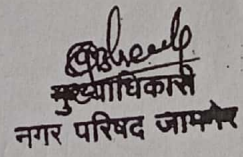 मुख्याधिकारी
नगर परिषद जामनेर